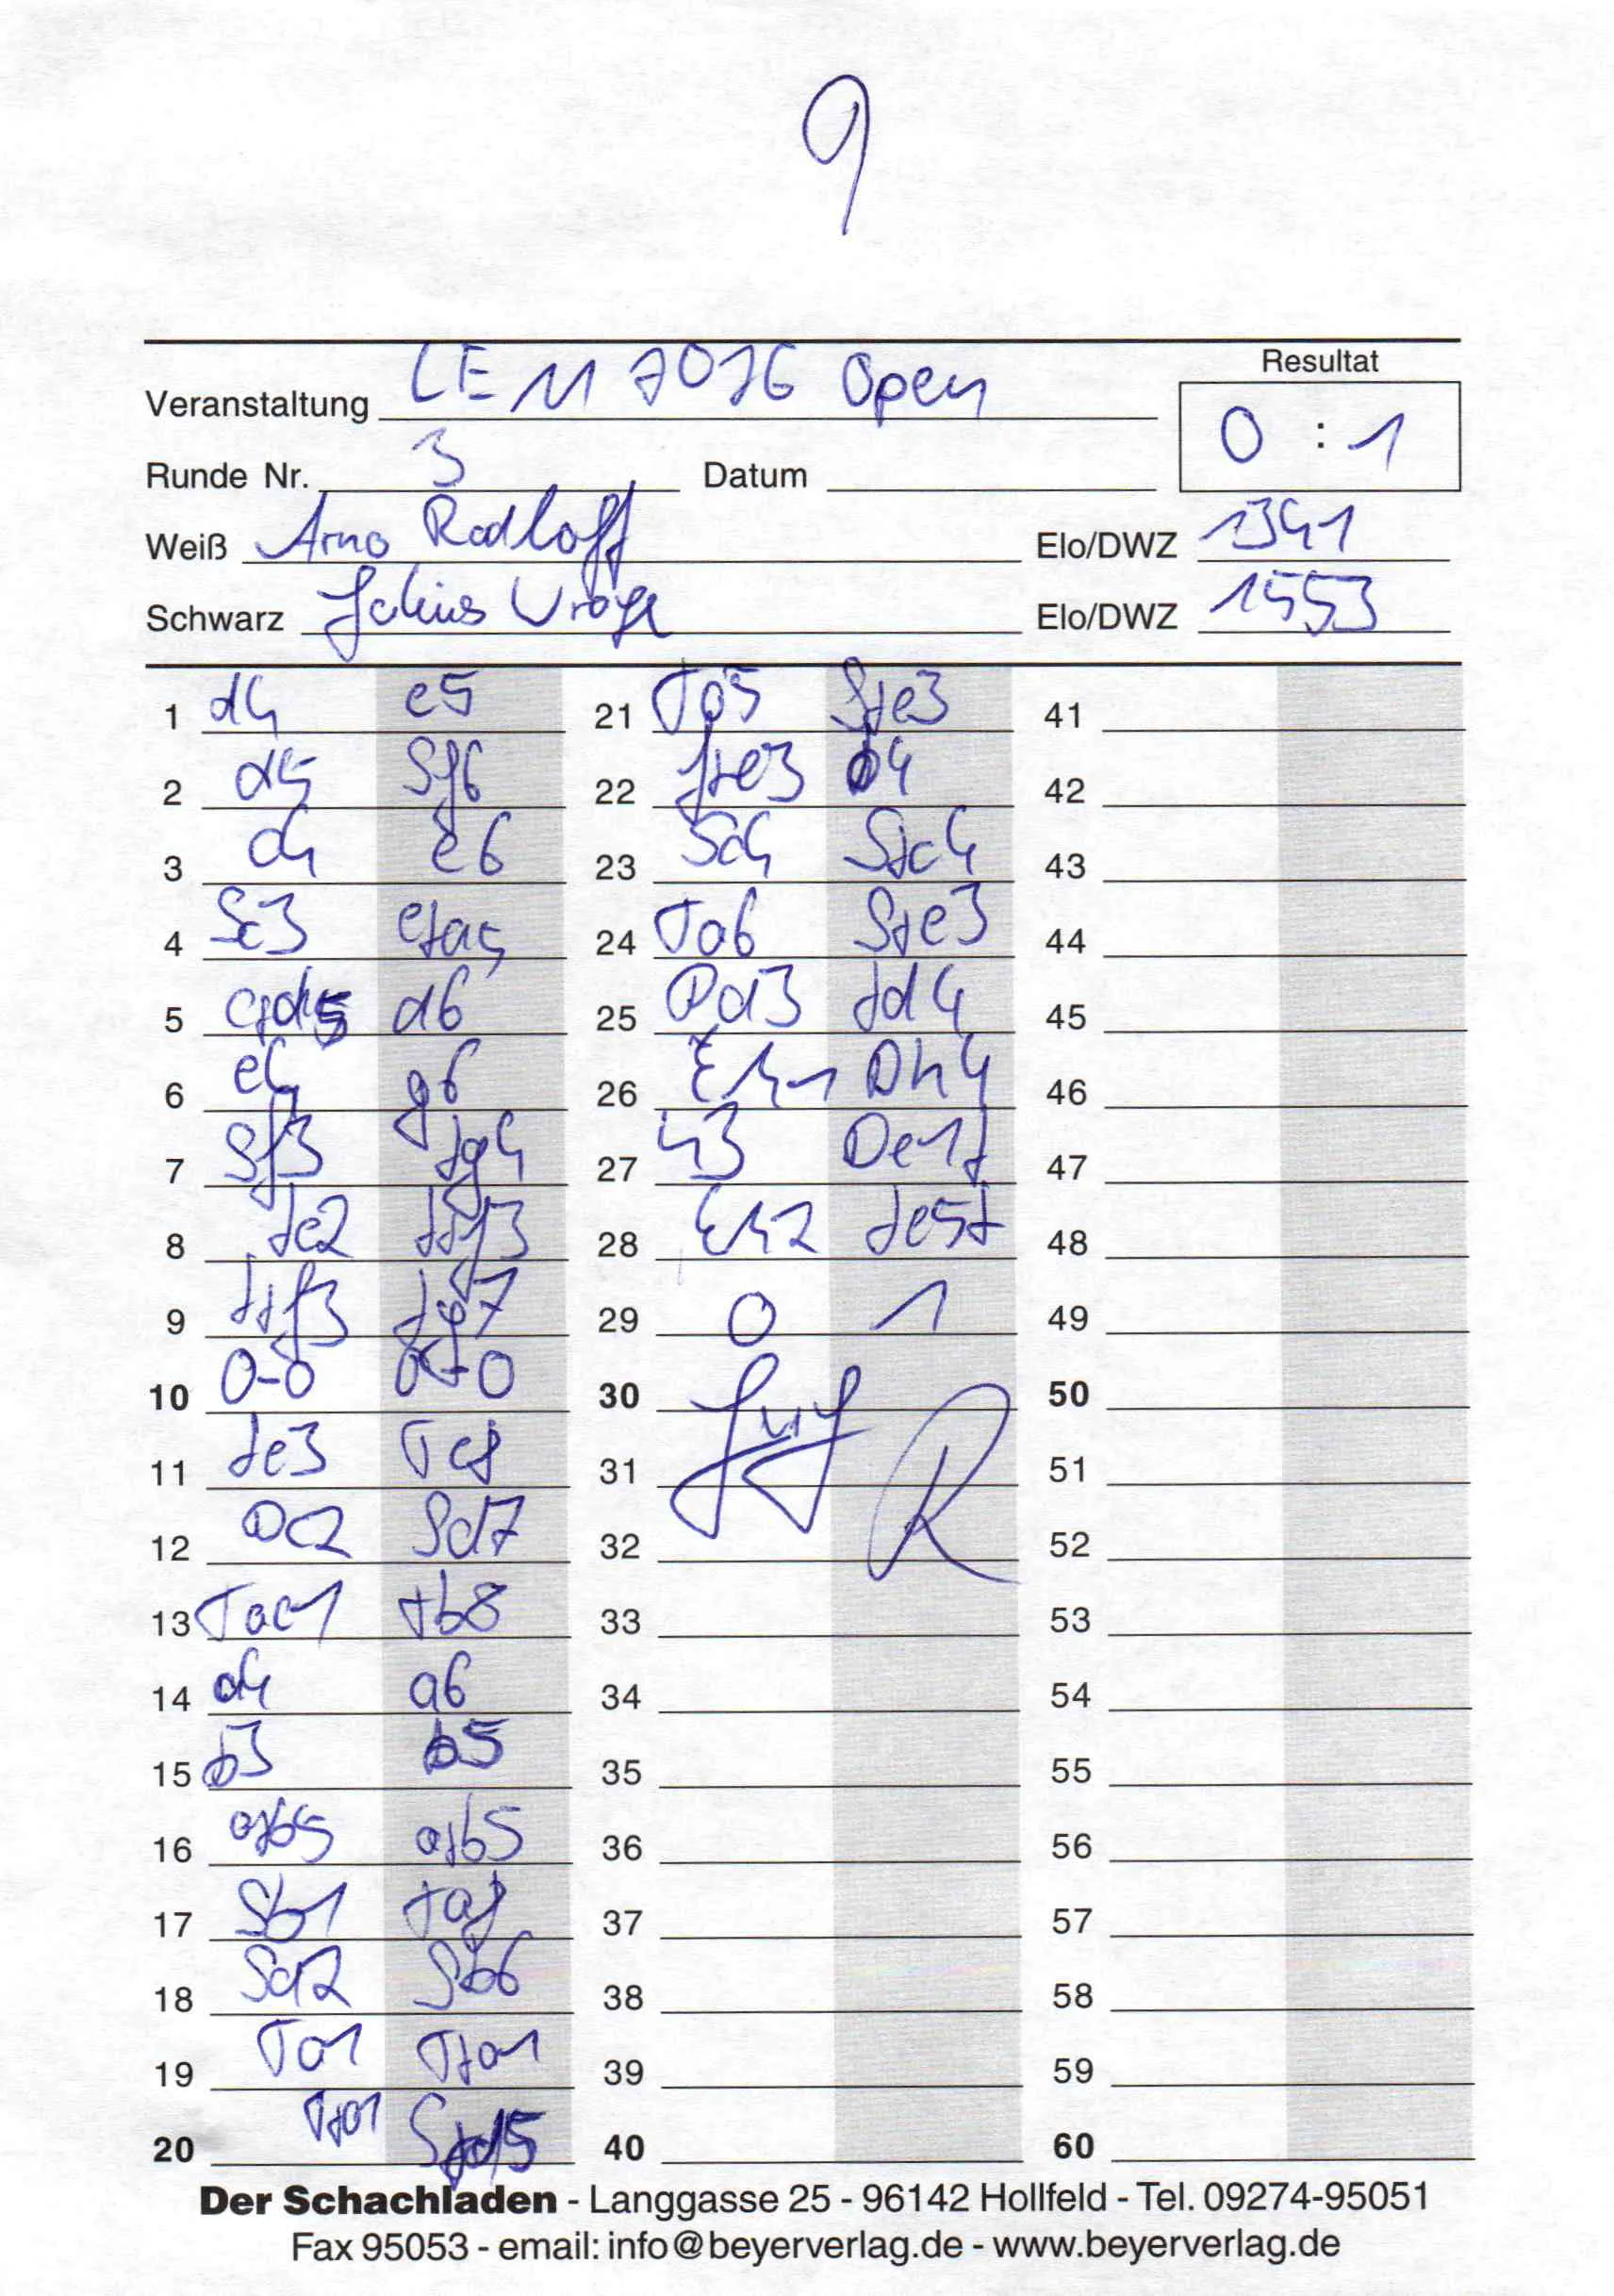 9
Resultat
Veranstaltung LEM 2016 Open
0 : 1
Runde Nr. 3 Datum
Weiß Arno Radloff Elo/DWZ 1341
Schwarz Elo/DWZ 1553
1 d4 e5 21 Ta5 Sxe3 41
2 d5 Sf6 22 fxe3 b4 42
3 c4 e6 23 Sc4 Sxc4 43
4 Sc3 exd5 24 Ta6 Sxe3 44
5 cxd5 d6 25 Dd3 Ld4 45
6 e4 g6 26 Kh1 Dh4 46
7 Sf3 Lg4 27 h3 De1+ 47
8 Le2 Lxf3 28 Kh2 Le5+ 48
9 Lxf3 Lg7 29 0 1 49
10 0-0 0-0 30 50
11 Le3 Te8 31 51
12 Dc2 Sd7 32 52
13 Tac1 Tb8 33 53
14 a4 a6 34 54
15 b3 b5 35 55
16 axb5 axb5 36 56
17 Sb1 Ta8 37 57
18 Sd2 Sb6 38 58
19 Ta1 Txa1 39 59
20 Txa1 Sxd5 40 60
Der Schachladen - Langgasse 25 - 96142 Hollfeld - Tel. 09274-95051
Fax 95053 - email: info@beyerverlag.de - www.beyerverlag.de